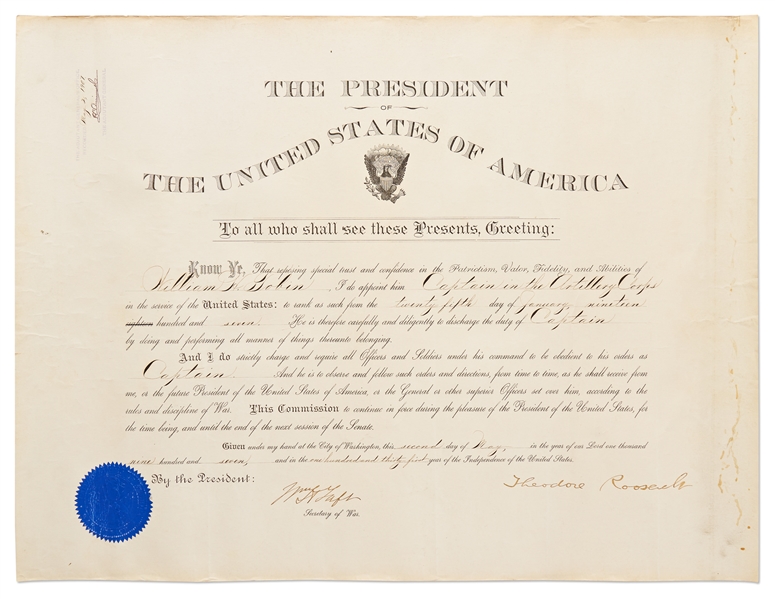 THE PRESIDENT
OF
THE UNITED STATES OF AMERICA
To all who shall see these Presents, Greeting:
Know Ye, That reposing special trust and confidence in the Patriotism, Valor, Fidelity, and Abilities of
William I do appoint him Captain in the Artillery Corps
in the service of the United States: to rank as such from the twenty fifth day of January, nineteen
eighteen hundred and seven. He is therefore carefully and diligently to discharge the duty of Captain
by doing and performing all manner of things thereunto belonging.
And I do strictly charge and require all Officers and Soldiers under his command to be obedient to his orders as
Captain. And he is to observe and follow such orders and directions, from time to time, as he shall receive from
me, or the future President of the United States of America, or the General or other superior Officers set over him, according to the
rules and discipline of War. This Commission to continue in force during the pleasure of the President of the United States, for
the time being, and until the end of the next session of the Senate.
Given under my hand at the City of Washington, this second day of May, in the year of our Lord one thousand
nine hundred and seven, and in the one hundred and thirty first year of the Independence of the United States.
By the President:
Theodore Roosevelt
Wm H Taft
Secretary of War.